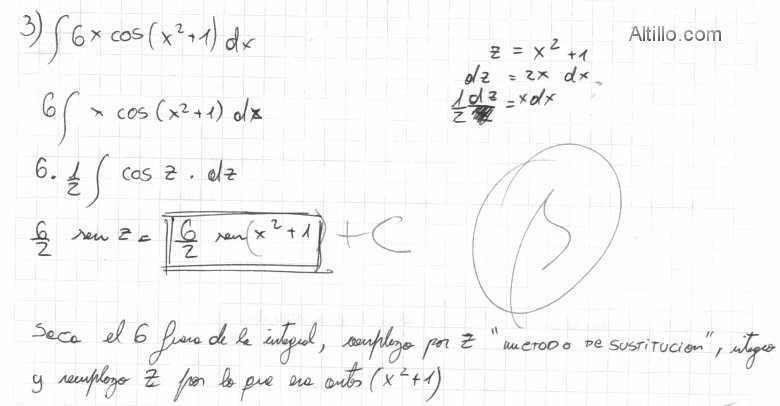 3) ∫ 6x cos(x²+1) dx
Altillo.com
z = x² + 1
dz = 2x dx
1/2 dz = x dx
6 ∫ x cos(x²+1) dx
6 . 1/2 ∫ cos z . dz
6/2 sen z = 6/2 sen(x²+1) + C
Saco el 6 fuera de la integral, remplazo por z "METODO DE SUSTITUCION", integro
y remplazo z por lo que era antes (x²+1)